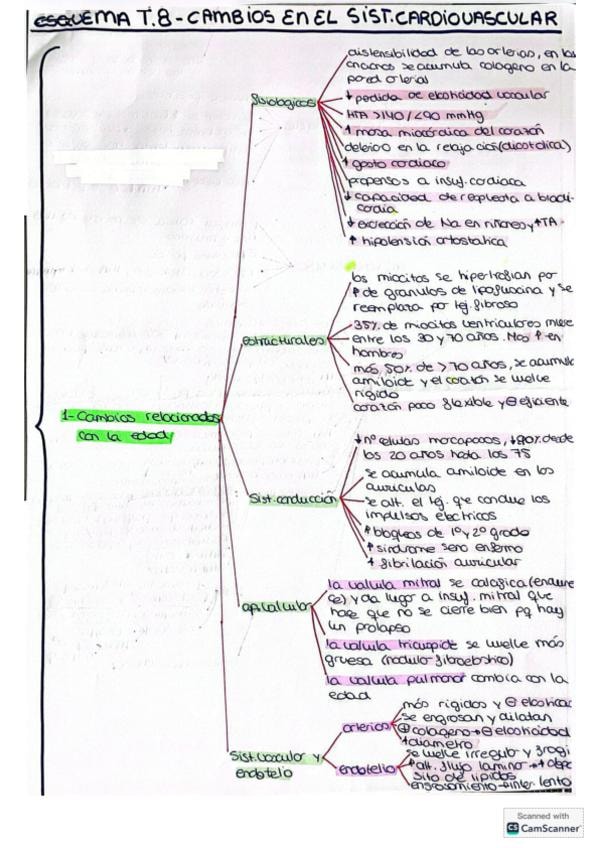 ESQUEMA T.8 - CAMBIOS EN EL SIST. CARDIOVASCULAR
1- Cambios relacionados
con la edad
fisiologicos
distensibilidad de las arterias, en las
se acumula colageno en la
pared arterial
↓ perdida de elasticidad vascular
HTA >140/<90 mmHg
↑ masa miocardica del corazón
deterioro en la relajación (diastolica)
↑ gasto cardiaco
propensos a insuf. cardiaca
↓ capacidad de repuesta a bradi-
cardia
↓ excreción de Na en riñones y ↑TA
↑ hipotensión ortostatica
estructurales
los miocitos se hipertrofian por
↑ de granulos de lipofuscina y se
reemplaza por tej. fibroso
35% de miocitos ventriculares muere
entre los 30 y 70 años. Mas ↑ en
hombres
más, 50% de >70 años, se acumula
amiloide y el corazón se vuelve
rigido
corazón poco flexible y ⊖ eficiente
Sist. conducción
↓ nº celulas marcapasos, ↓90% desde
los 20 años hasta los 75
se acumula amiloide en las
auriculas
se alt. el tej. que conduce los
impulsos electricos
↑ bloqueos de 1º y 2º grado
↑ sindrome seno enfermo
↑ fibrilación auricular
ap. valvular
la valvula mitral se calcifica (endure
ce) y da lugar a insuf. mitral que
hace que no se cierre bien pq hay
un prolapso
la valvula tricuspide se vuelve más
gruesa (nodulo fibroelastico)
la valvula pulmonar cambia con la
edad
Sist. vascular y
endotelio
arterias
más rigidos y ⊖ elasticas
se engrosan y dilatan
⊕ colageno → ⊖ elasticidad
↑ diametro
endotelio
se vuelve irregular y
↑ alt. flujo laminar →
sito de lipidos
engrosamiento lento
Scanned with
CS CamScanner